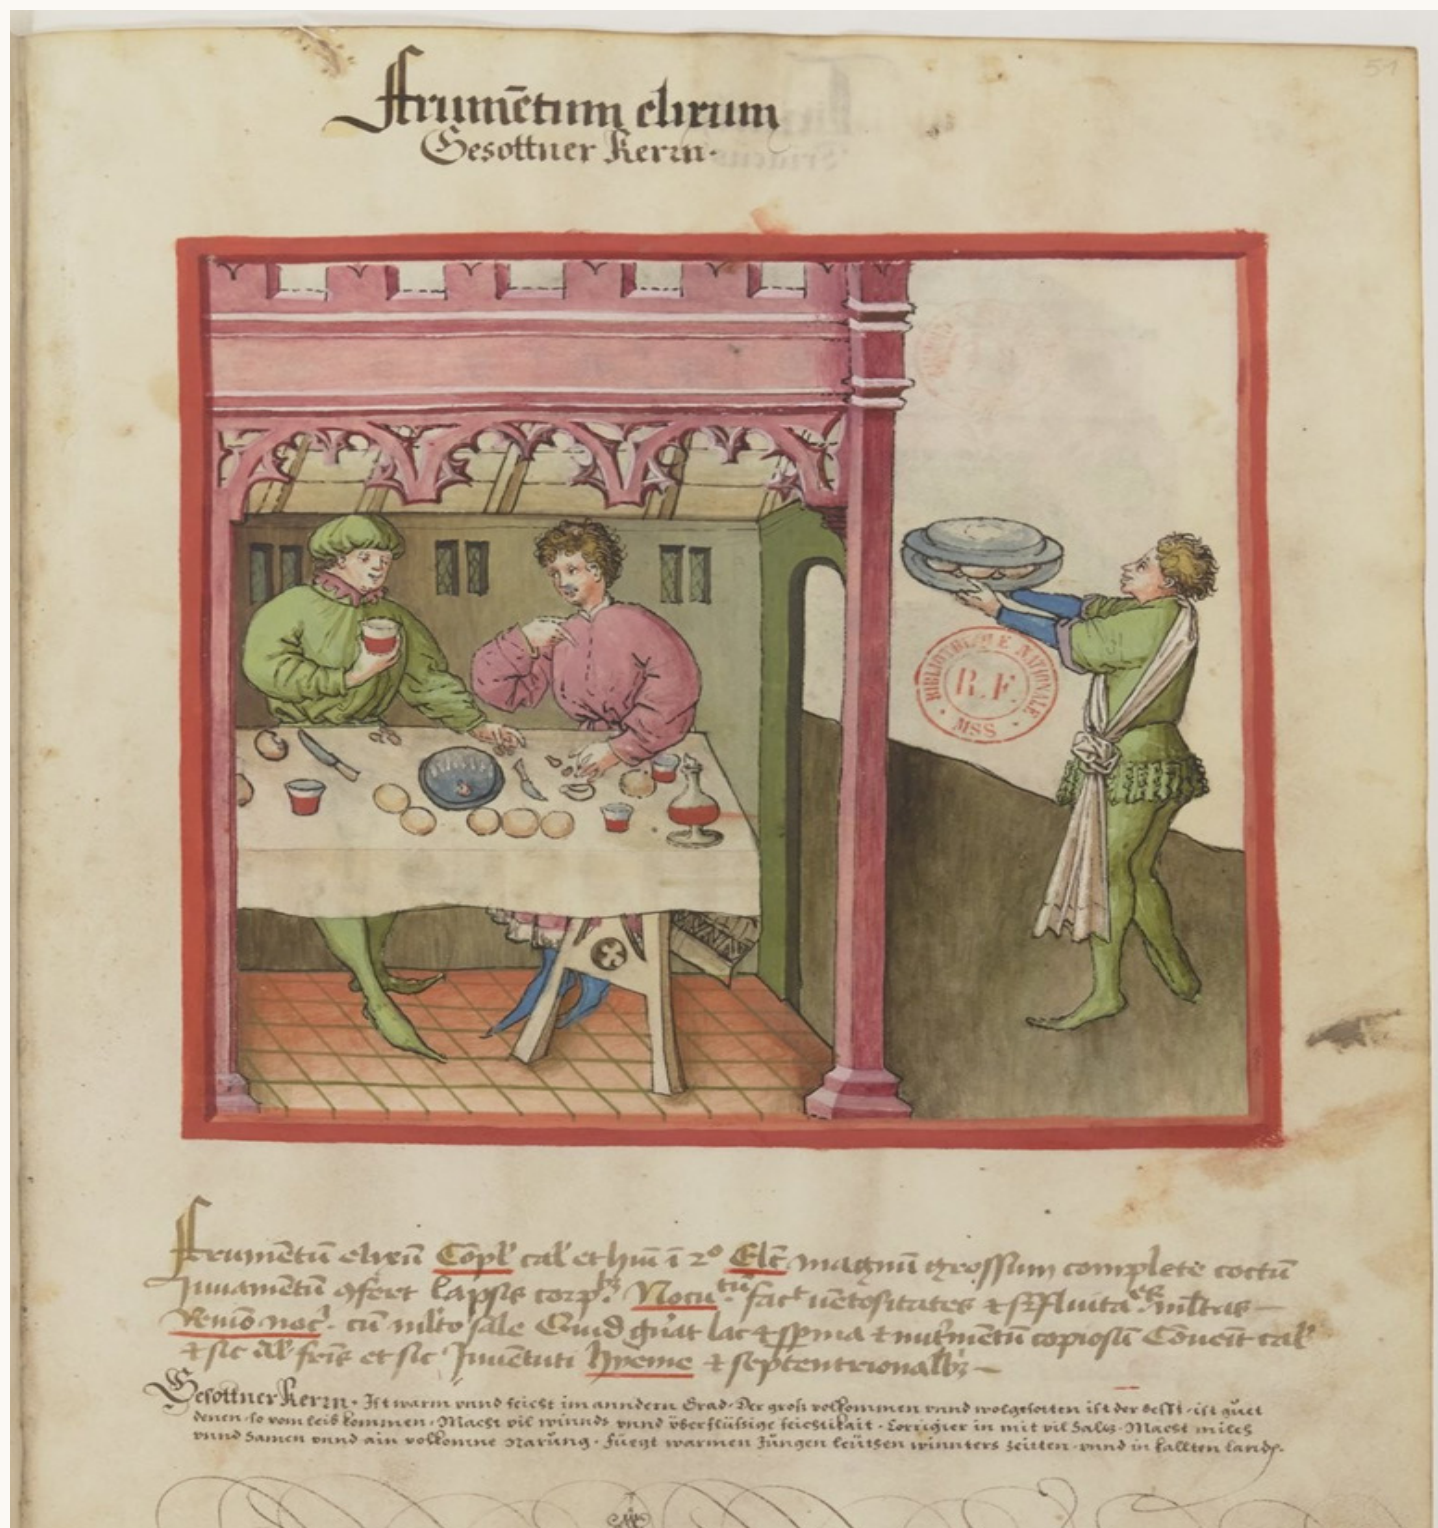 51
Frumētum elixum
Gesottner Kern·
BIBLIOTHEQUE NATIONALE
R.F.
MSS
Frumētū elixū Cōpl' cal' et hūi ī 2° Elc̄ magnū grossum complete coctū
Juuamētū ꝯfert lapsis corpibꝫ Nocu facit uētositates & suꝑfluitates multas
Remō noc̄ cū multo sale Quid gn̄at lac & sperma & nutrimētū copiosū Cōuenit cal'
& sic et sic Juuētuti hyeme & septentrionalibꝫ
Gesottner Kern· Ist warm vnnd feicht im anndern Grad· Der groß volkommen vnnd wolgesotten ist der besst· ist guet
denen so vom leib kommen· Macht vil winnds vnnd vberflüssige feichtikait· Corrigier in mit vil Saltz· Macht milch
vnnd Samen vnnd ain volkomne narung· fuegt warmen Jungen leutten winnters zeitten vnnd in kallten landen